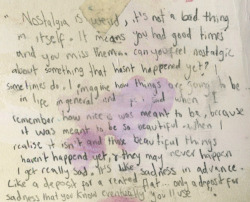 Nostalgia is weird, it's not a bad thing
in itself. It means you had good times
and you miss them. Can you feel nostalgic
about something that hasnt happened yet?
Sometimes do, I imagine how things are going to be
in life in general and get sad when I
remember how nice it was meant to be, because
it was meant to be so beautiful when I
realise it isn't and those beautiful things
havent happened yet, & they may never happen
I get really sad. It's like sadness in advance.
Like a deposit for a rented flat... only a deposit for
sadness that you know eventually you'll use